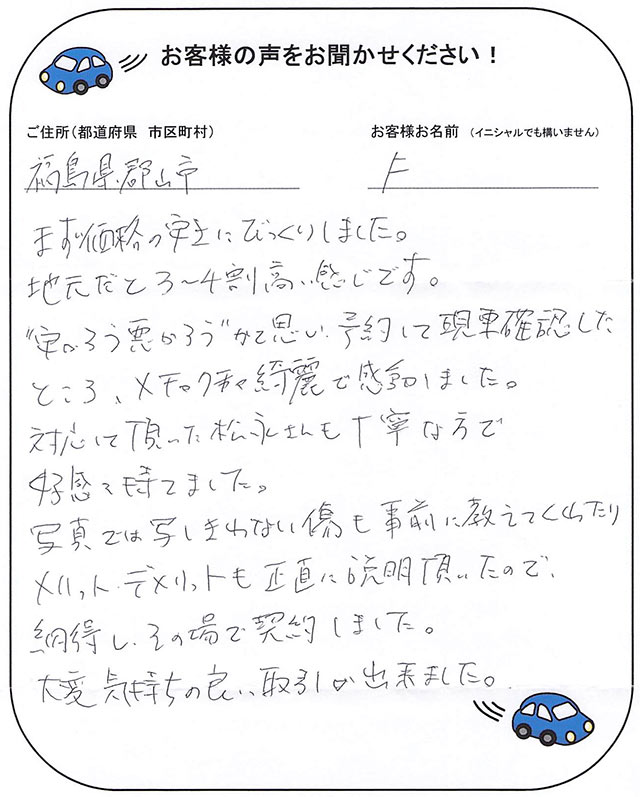 お客様の声をお聞かせください！
ご住所（都道府県 市区町村）
お客様お名前 （イニシャルでも構いません）
福島県郡山市
F
まず価格の安さにびっくりしました。
地元だと3〜4割高い感じです。
"安かろう悪かろう"かと思い、予約して現車確認した
ところ、メチャクチャ綺麗で感動しました。
対応して頂いた松永さんも丁寧な方で
好感を持てました。
写真では写しきれない傷も事前に教えてくれたり
メリット・デメリットも正直に説明頂いたので、
納得し、その場で契約しました。
大変気持ちの良い取引が出来ました。